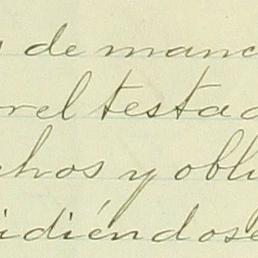 s de manc
rel testad
chos y obli
idiéndose